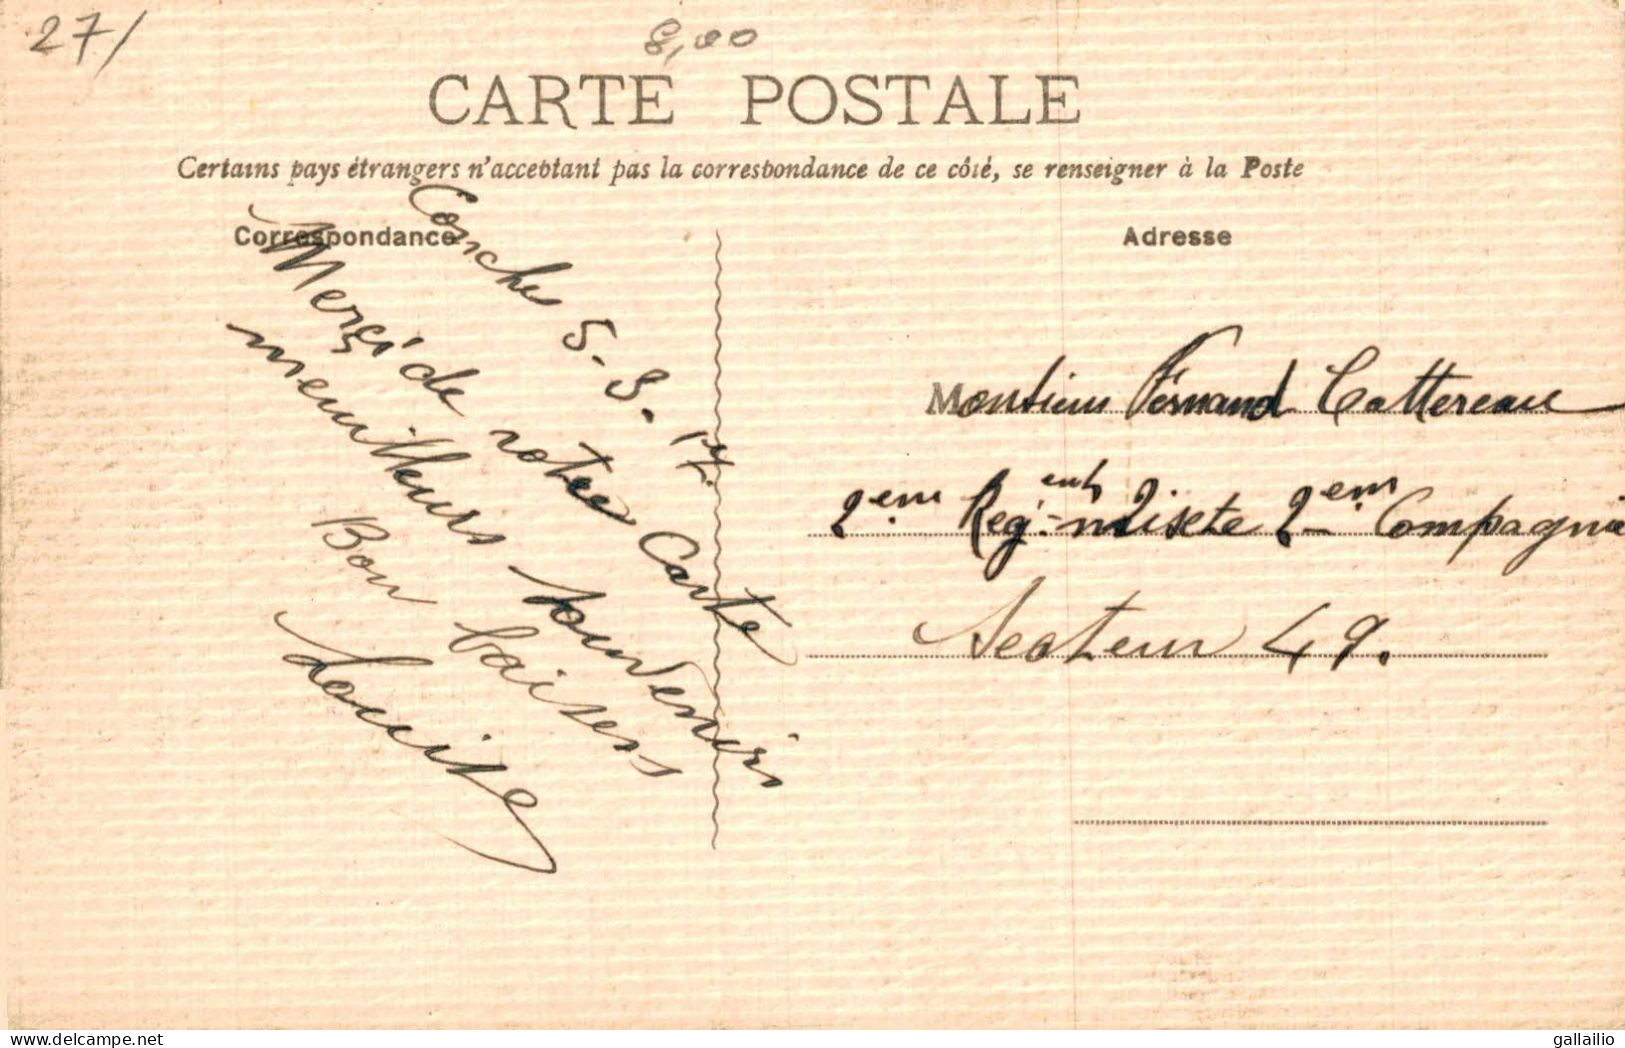 27/
8,00
CARTE POSTALE
Certains pays étrangers n'acceptant pas la correspondance de ce côté, se renseigner à la Poste
Correspondance
Conches 5-9-17.
Merçi de votre Carte
meuilleurs souvenirs
Bon baisers
Louise
Adresse
Monsieur Fernand Cattereau
2eme Reg-ent mixte 2eme Compagnie
Secteur 49.
www.delcampe.net
gallailio